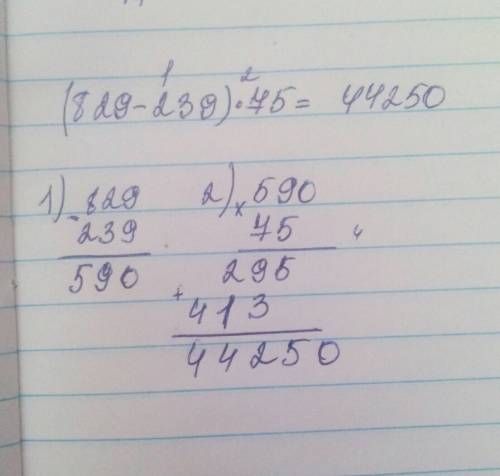 1 2
(829-239)·75= 44250
1) 829 2) 590
- 239 × 75
590 295
+ 413
44250